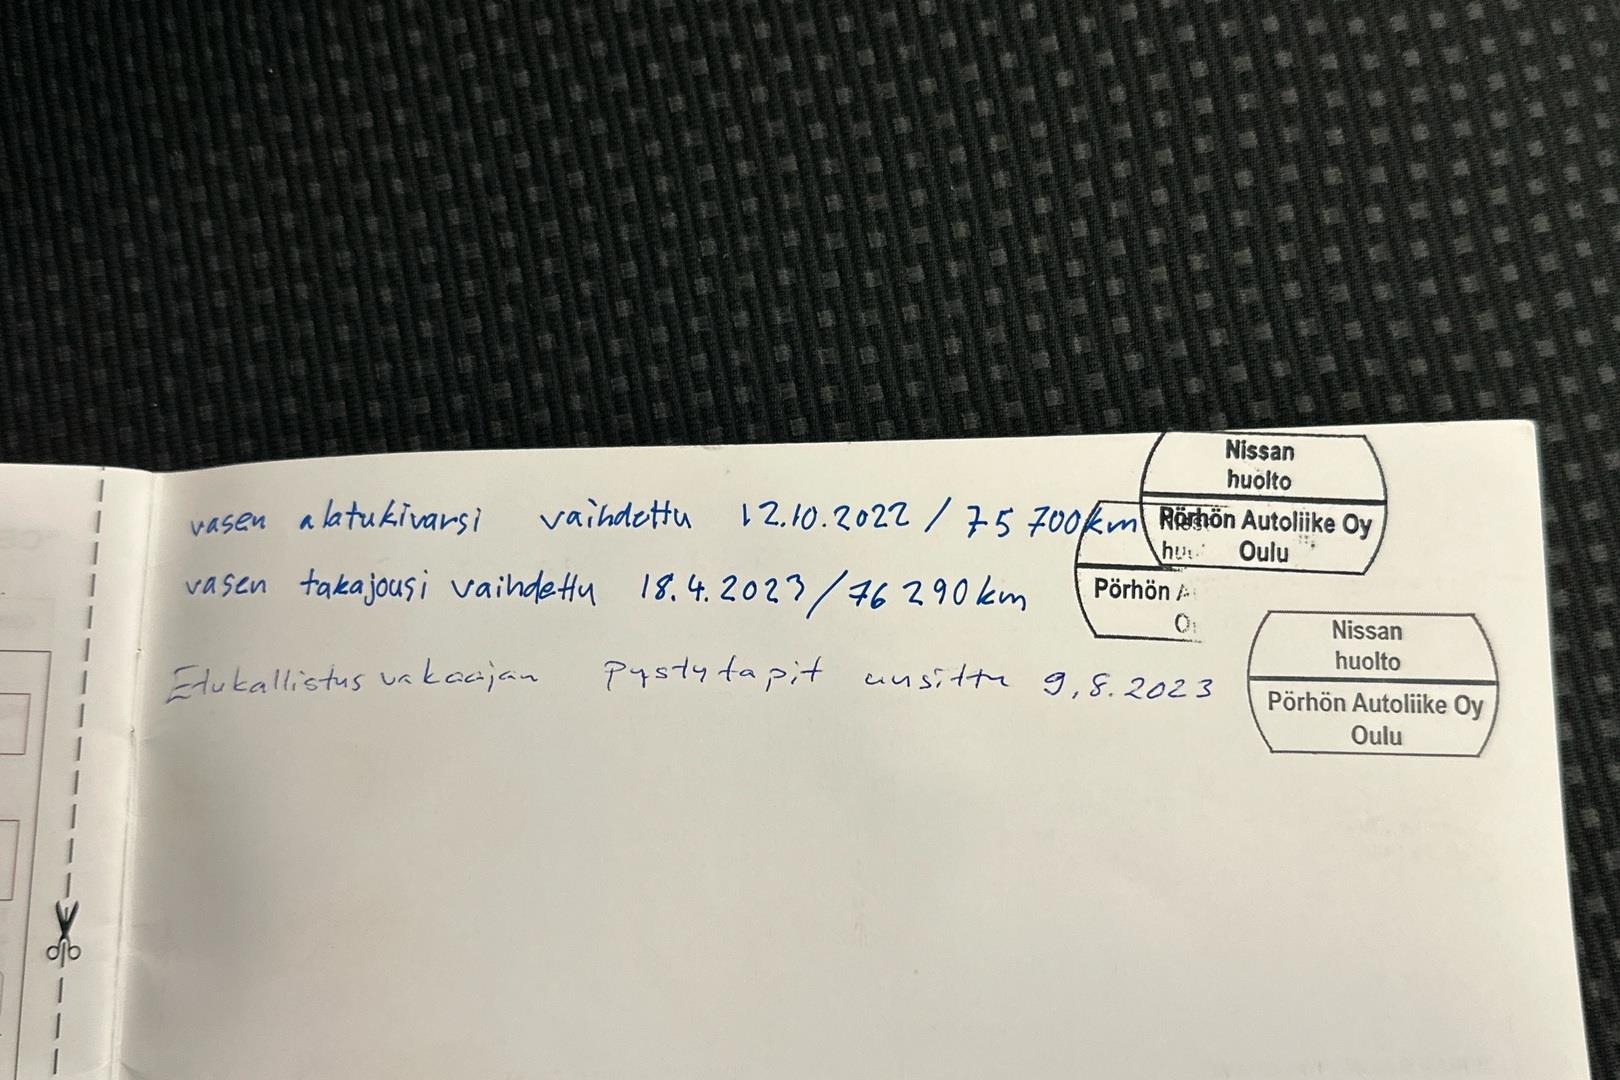 vasen alatukivarsi vaihdettu 12.10.2022 / 75 700km
vasen takajousi vaihdettu 18.4.2023/76 290km
Etukallistusvakaajan Pystytapit uusittu 9,8.2023
Nissan
huolto
Pörhön Autoliike Oy
Oulu
Pörhön
Nissan
huolto
Pörhön Autoliike Oy
Oulu